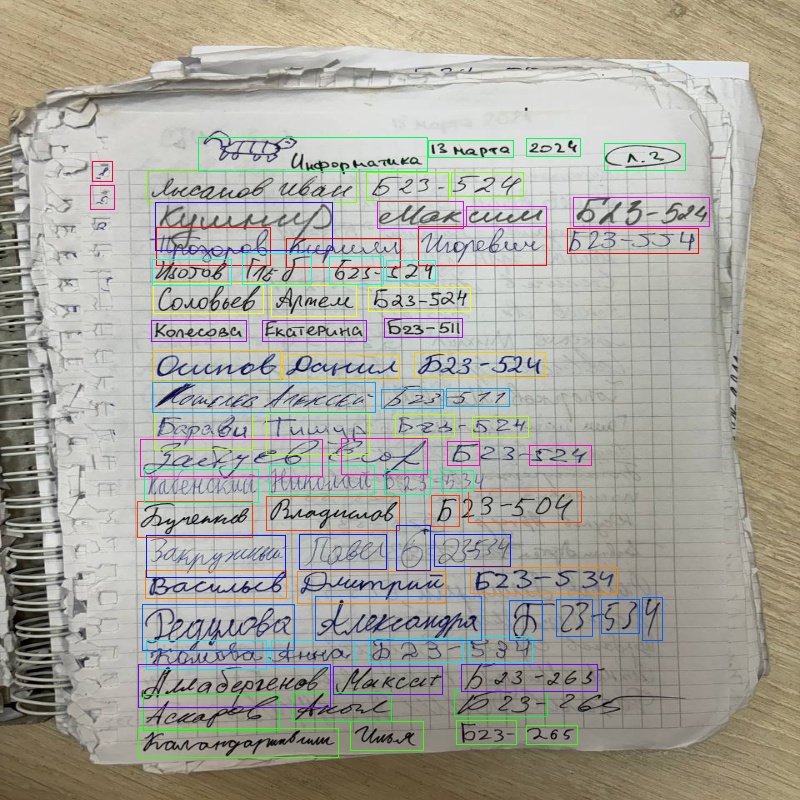 Информатика 13 марта 2024 л.2
Лысанов Иван Б23-524
Кушнир Максим Б23-524
Прозоров Кирилл Игоревич Б23-554
Изотов Глеб Б23-524
Соловьев Артем Б23-524
Колесова Екатерина Б23-511
Осипов Данил Б23-524
Алексей Б23-511
Тимур Б23-524
Зайцев Егор Б23-524
Николай Б23-534
Бученков Владислав Б23-504
Закружный Павел Б 23534
Васильев Дмитрий Б23-534
Редулова Александра Б 23-534
Комова Анна Б23-534
Алабергенов Максат Б23-265
Аскаров Акыл Б23-265
Каландаришвили Илья Б23-265